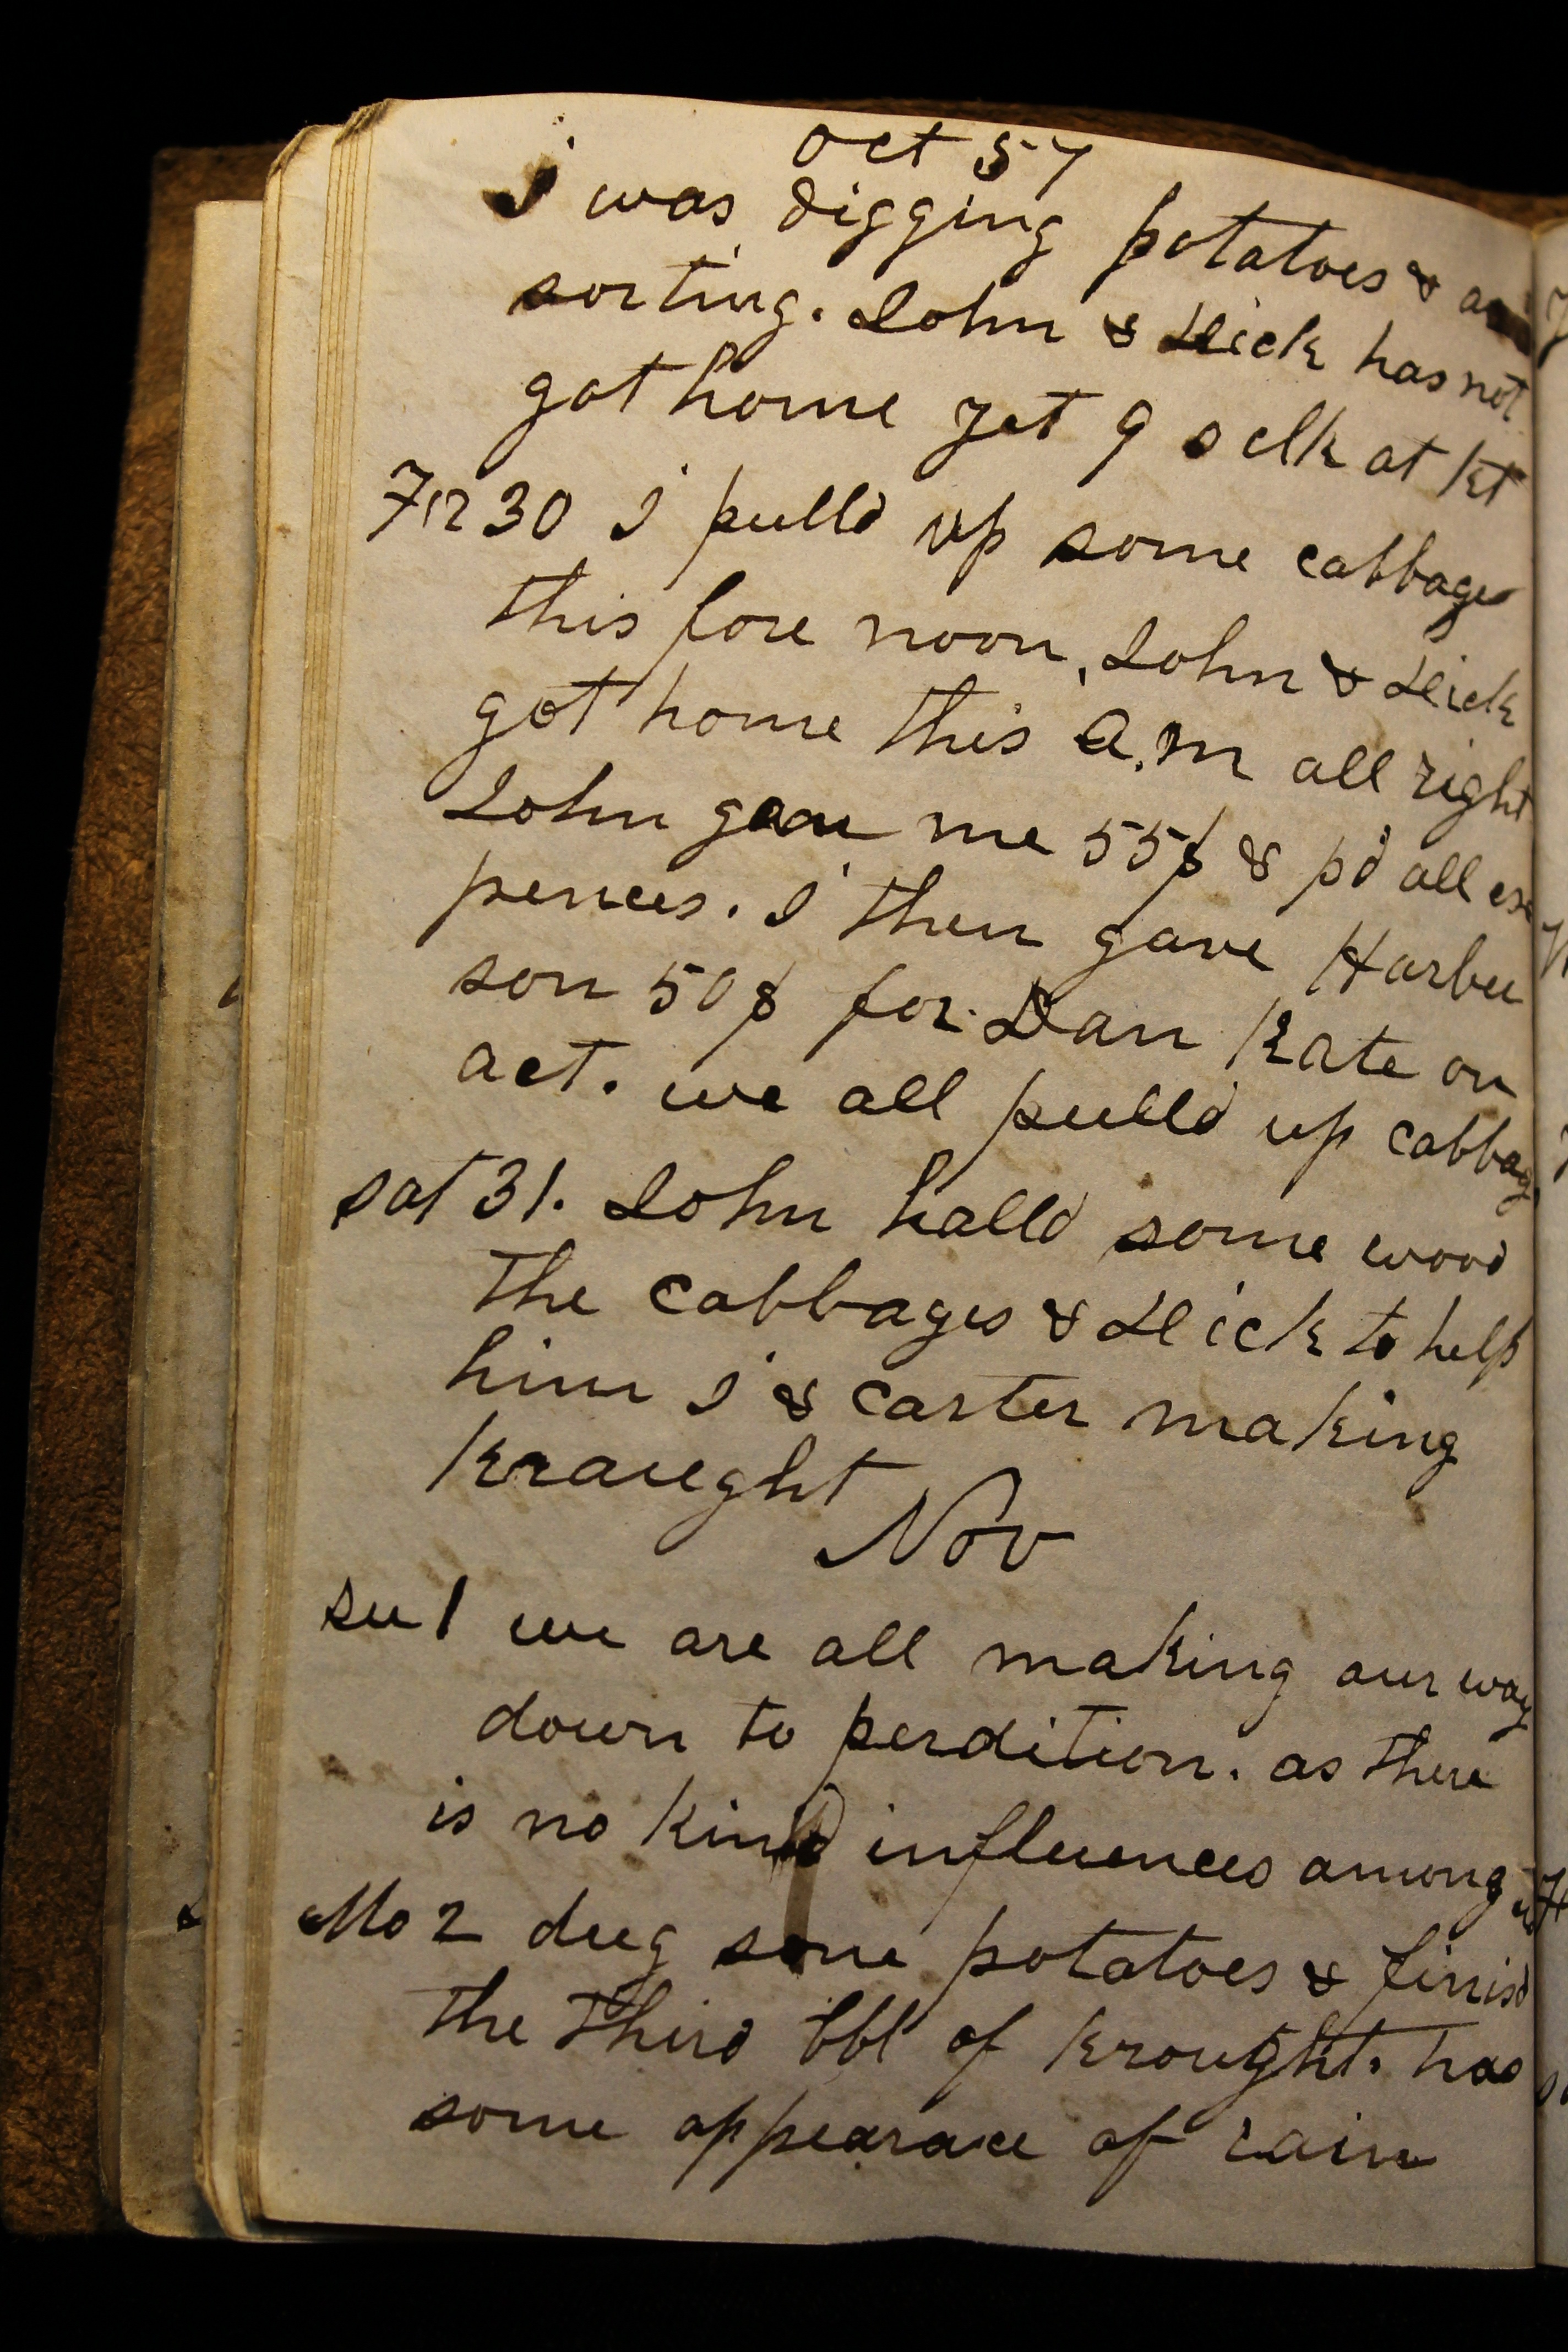 oct 57
I was digging potatoes & as
sorting. John & Dick has not
got home yet 9 o clk at Kt
Fr 30 I pulld up some cabbages
this fore noon, John & Dick
got home this a.m all right
John gave me 55$ & pd all ex
pences. I then gave Harbu
son 50$ for Dan Kate on
act. we all pulld up cabbag
sat 31. John halld some wood
the cabbages & Dick to help
him I & carter making
kraught
Nov
su 1 we are all making our way
down to perdition. as there
is no kind influences among us
Mo 2 dug some potatoes & finisd
the third bbl of krought. has
some appearace of rain